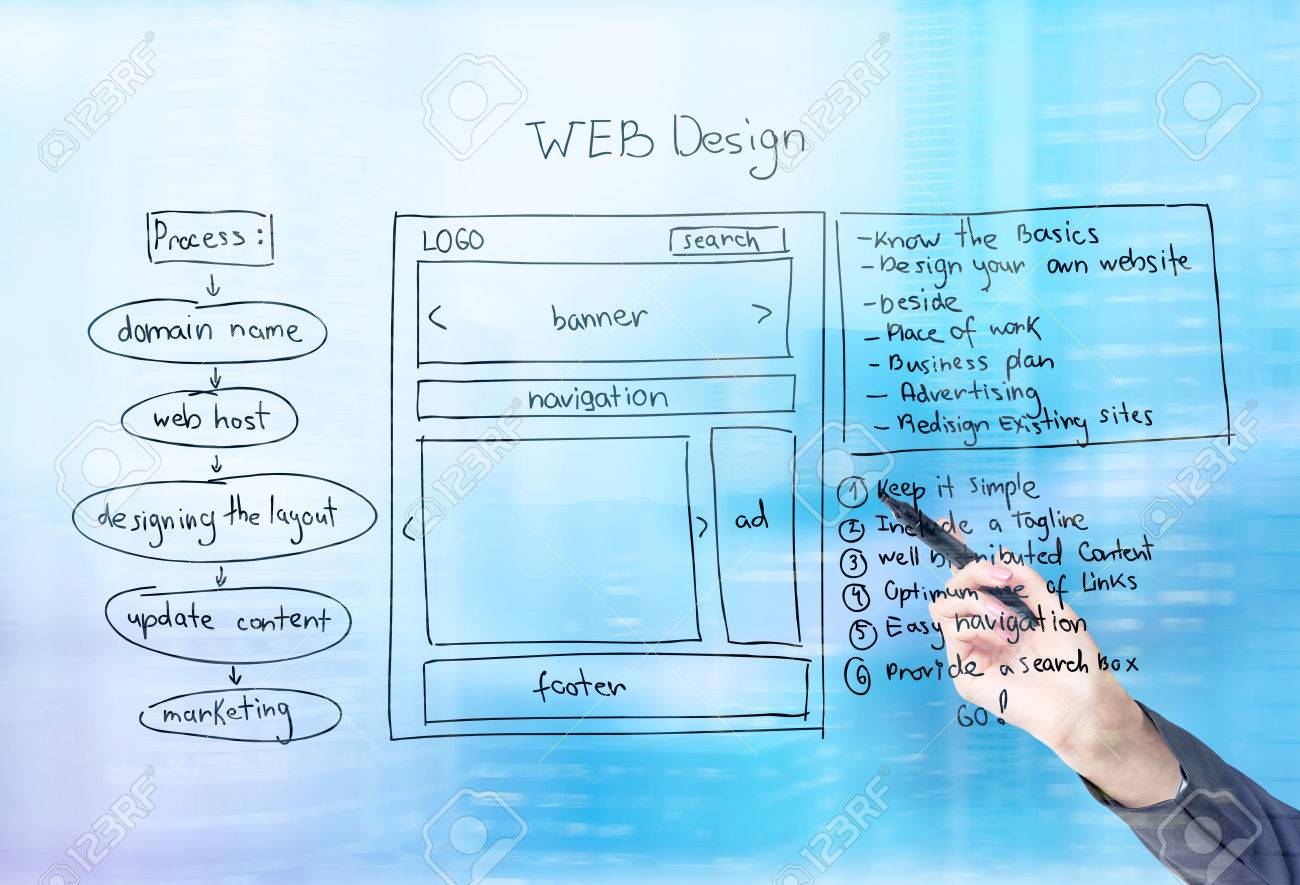 WEB Design
Process:
domain name
web host
designing the layout
update content
marketing
LOGO
search
< banner >
navigation
< >
ad
footer
-Know the Basics
-Design your own website
-beside
-Place of work
-Business plan
-Advertising
-Redisign Existing sites
1 Keep it simple
2 Include a tagline
3 well Content
4 Optimum of Links
5 Easy navigation
6 Provide a search Box
GO!
123RF